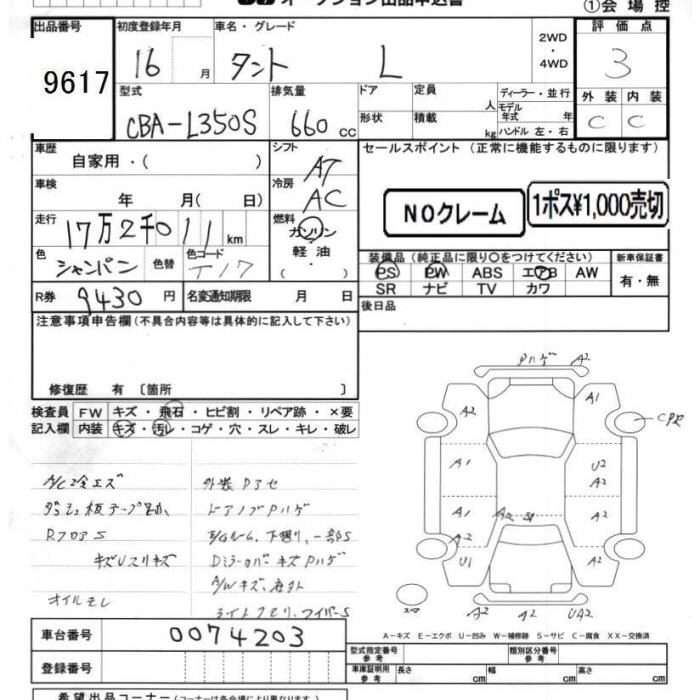 オークション出品申込書
①会場控
出品番号
9617
初度登録年月
16 月
車名・グレード
タント L
2WD
・
4WD
評価点
3
型式
CBA-L350S
排気量
660 cc
ドア
形状
定員
人
積載
kg
ディーラー・並行
モデル年式 年
ハンドル 左・右
外装 内装
C C
車歴
自家用・( )
シフト
AT
セールスポイント (正常に機能するものに限ります)
車検
年 月( 日)
冷房
AC
NOクレーム
1ポス¥1,000売切
走行
17万2千011 km
燃料
ガソリン
軽油
・
色
シャンパン
色替
色コード
T17
装備品 (純正品に限り○をつけてください)
PS PW ABS エアB AW
SR ナビ TV カワ
新車保証書
有・無
R券
9430 円
名変通知期限 月 日
後日品
注意事項申告欄(不具合内容等は具体的に記入して下さい)
修復歴 有 〔箇所 〕
検査員
記入欄
FW キズ・飛石・ヒビ割・リペア跡・×要
内装 キズ・汚レ・コゲ・穴・スレ・キレ・破レ
RフロアS
オイルモレ
外装
ドアノブPハゲ
下廻り、一部S
DミラーカバーキズPハゲ
A/Wキズ
ワイパーS
Pハゲ A2
A2 A1
A1 U2
A2
A1 A2
A2
U1 A2
スペア
A2 A2 UA2
A-キズ E-エクボ U-凹み W-補修跡 S-サビ C-腐食 XX-交換済
車台番号
0074203
登録番号
型式指定番号
参考
類別区分番号
参考
車庫証明用
参考
長さ cm 幅 cm 高さ cm
希望出品コーナー(コーナーは各会場により異なります)